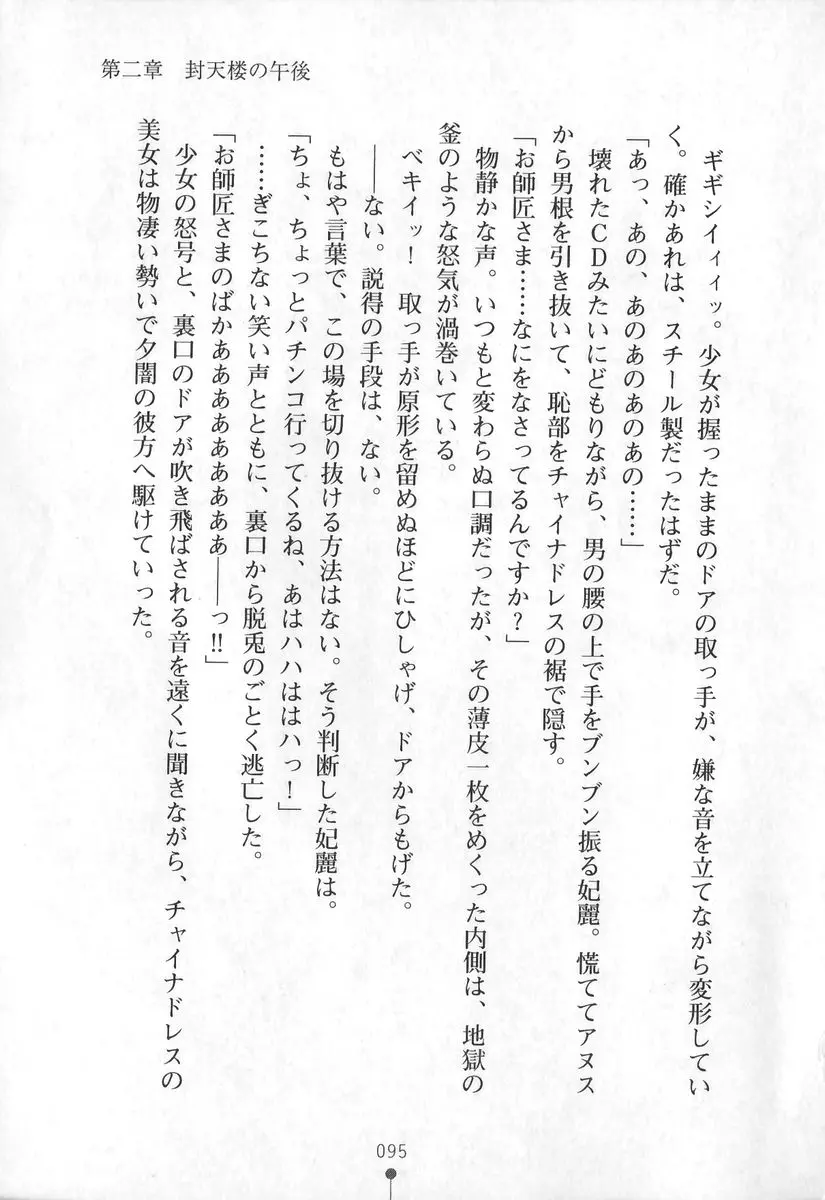 第二章　封天楼の午後
　ギギシイィィッ。少女が握ったままのドアの取っ手が、嫌な音を立てながら変形してい
く。確かあれは、スチール製だったはずだ。
「あっ、あの、あのあのあのあの……」
　壊れたＣＤみたいにどもりながら、男の腰の上で手をブンブン振る妃麗。慌ててアヌス
から男根を引き抜いて、恥部をチャイナドレスの裾で隠す。
「お師匠さま……なにをなさってるんですか？」
　物静かな声。いつもと変わらぬ口調だったが、その薄皮一枚をめくった内側は、地獄の
釜のような怒気が渦巻いている。
　ベキイッ！　取っ手が原形を留めぬほどにひしゃげ、ドアからもげた。
　――ない。説得の手段は、ない。
　もはや言葉で、この場を切り抜ける方法はない。そう判断した妃麗は。
「ちょ、ちょっとパチンコ行ってくるね、あはハハははハっ！」
　……ぎこちない笑い声とともに、裏口から脱兎のごとく逃亡した。
「お師匠さまのばかあああああああああ――っ!!」
　少女の怒号と、裏口のドアが吹き飛ばされる音を遠くに聞きながら、チャイナドレスの
美女は物凄い勢いで夕闇の彼方へ駆けていった。
095